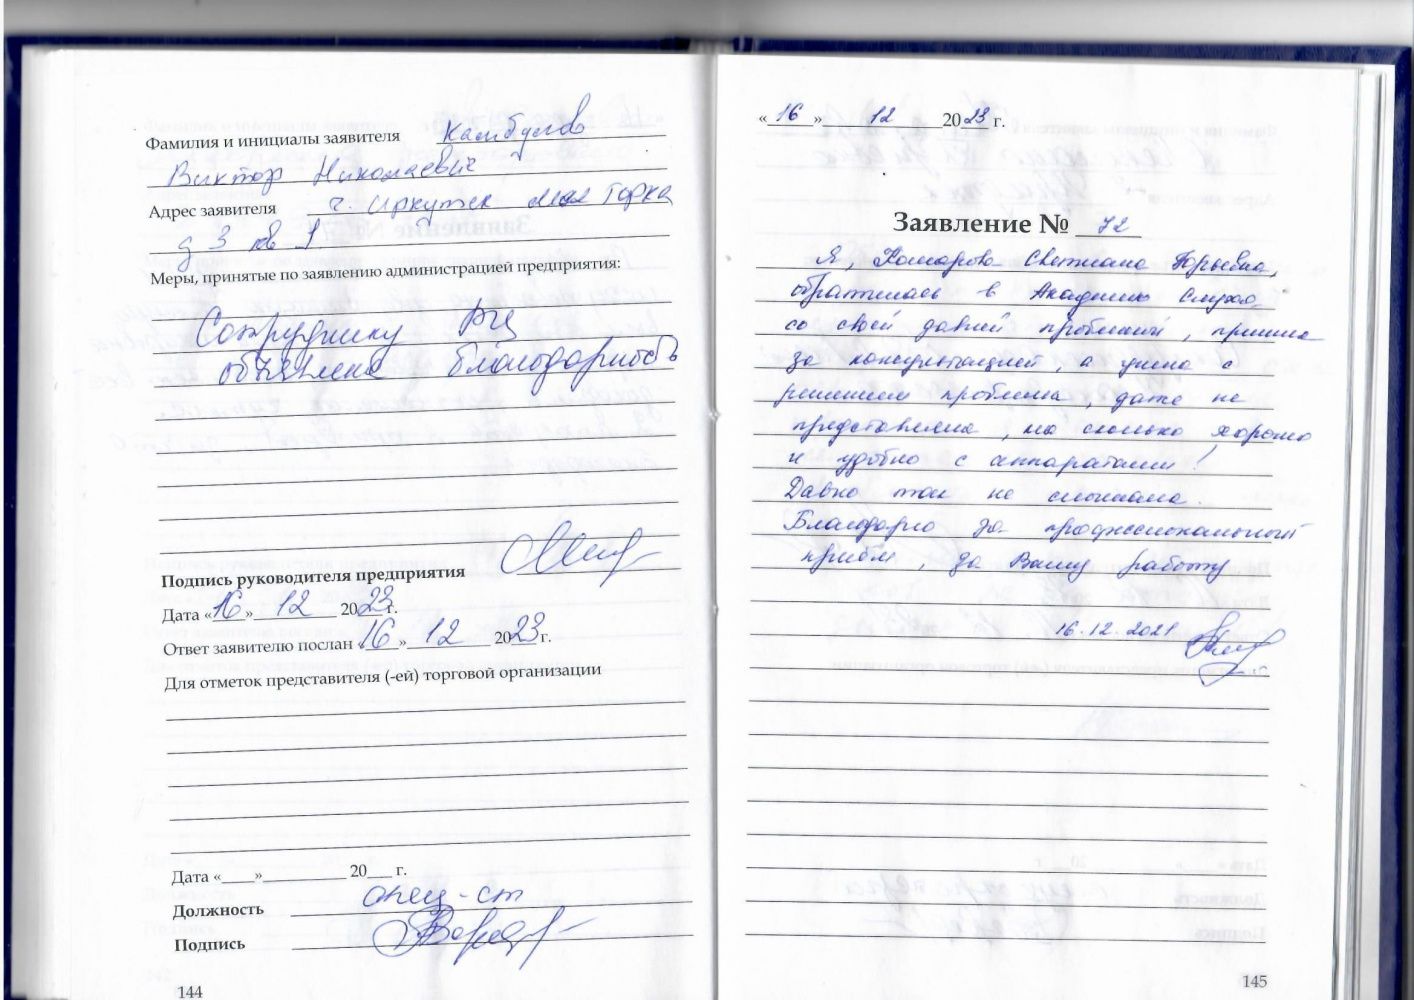 Фамилия и инициалы заявителя Камбулов
Виктор Николаевич
Адрес заявителя г. Иркутск Мал Горка
д 3 кв 1
Меры, принятые по заявлению администрацией предприятия:
Сотруднику РЦ
объявлена благодарность
Подпись руководителя предприятия
Дата «16» 12 2023г.
Ответ заявителю послан «16» 12 2023г.
Для отметок представителя (-ей) торговой организации
Дата «___»__________ 20___ г.
Должность спец-ст
Подпись
144
«16» 12 2023 г.
Заявление № 72
Я, Комарова Светлана Юрьевна,
обратилась в Академию Слуха
со своей давней проблемой, пришла
за консультацией, а ушла с
решением проблемы, даже не
представляла, на сколько хорошо
и удобно с аппаратами!
Давно так не слышала.
Благодарю за профессиональный
приём, за Вашу работу
16.12.2021
145